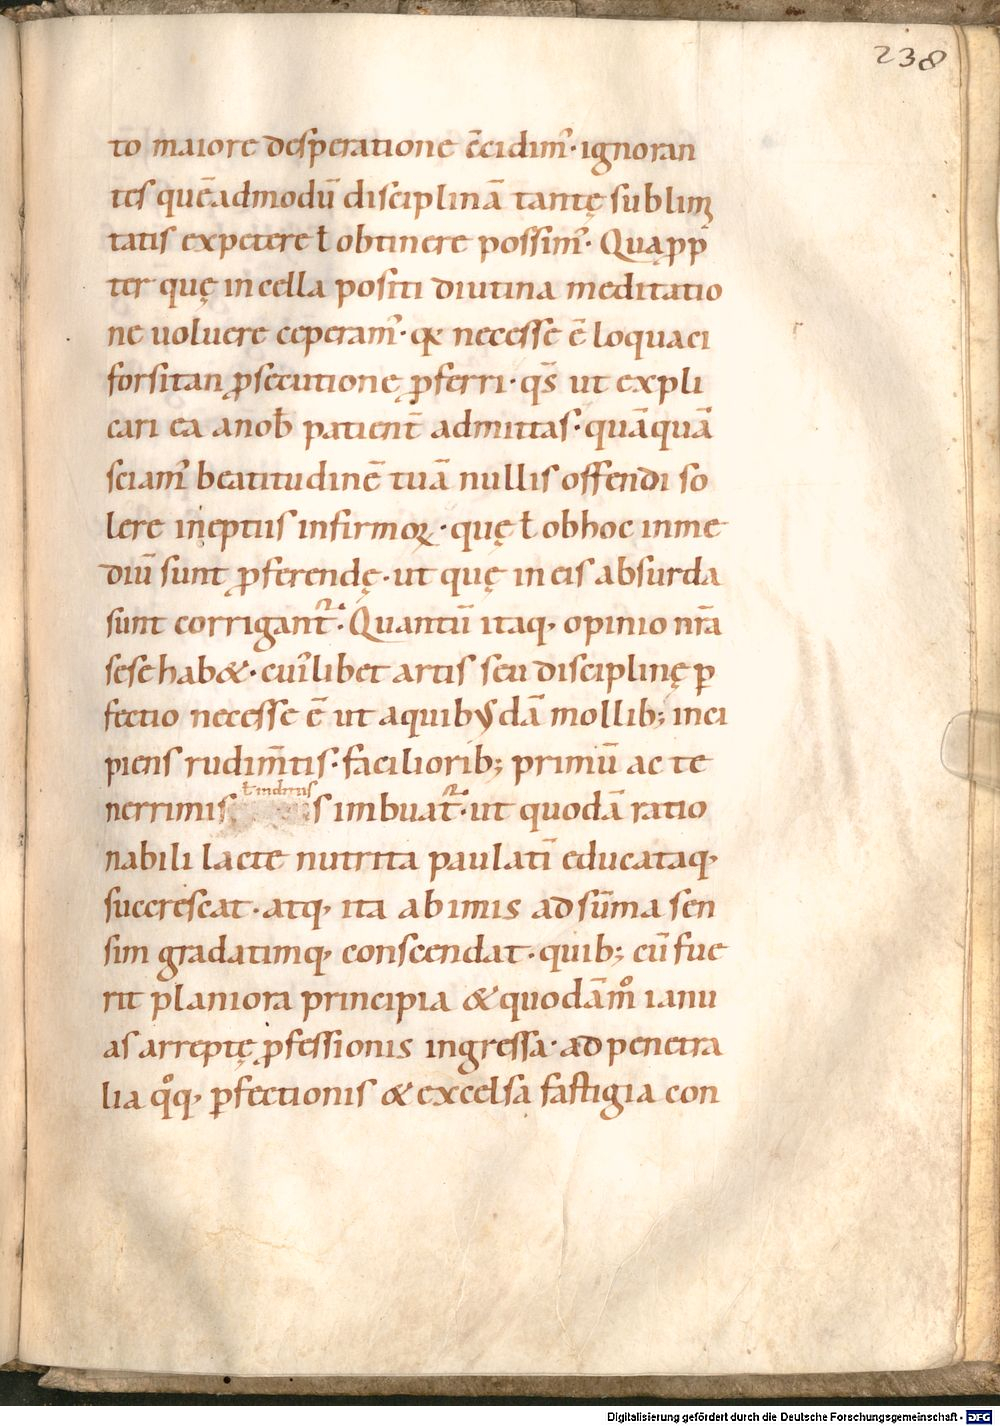 238
to maiore desperatione c̄cidim᾽· ignoran
tes quēadmodū disciplinā tantę sublimi
tatis expetere ł obtinere possim᾽· Quaꝓp
ter quę in cella positi diutina meditatio
ne uoluere cęperam᾽· & necesse ē loquaci
forsitan ꝓsecutione ꝓferri· qs̄ ut expli
cari ea anob̄ patient̄ admittas· quāquā
sciam᾽ beatitudinē tuā nullis offendi so
lere ineptiis infirmoꝝ· quę ł obhoc inme
diū sunt ꝓferendę· ut quę in eis absurda
sunt corrigant᷑· Quantū itaq; opinio nr̄a
sese hab&· cui᾽libet artis seu disciplinę ꝑ
fectio necesse ē ut aquibusdā mollib; inci
piens rudim̄tis· faciliorib; primū ac te
nerrimis s imbuat᷑· ut quodā ratio
nabili lacte nutrita paulatī educataq;
succrescat· atq; ita ab imis ad sūma sen
sim gradatimq; conscendat· quib; cū fue
rit planiora principia & quodāmº ianu
as arreptę ꝓfessionis ingressa· ad penetra
lia qºq; ꝑfectionis & excelsa fastigia con
Digitalisierung gefördert durch die Deutsche Forschungsgemeinschaft - DFG